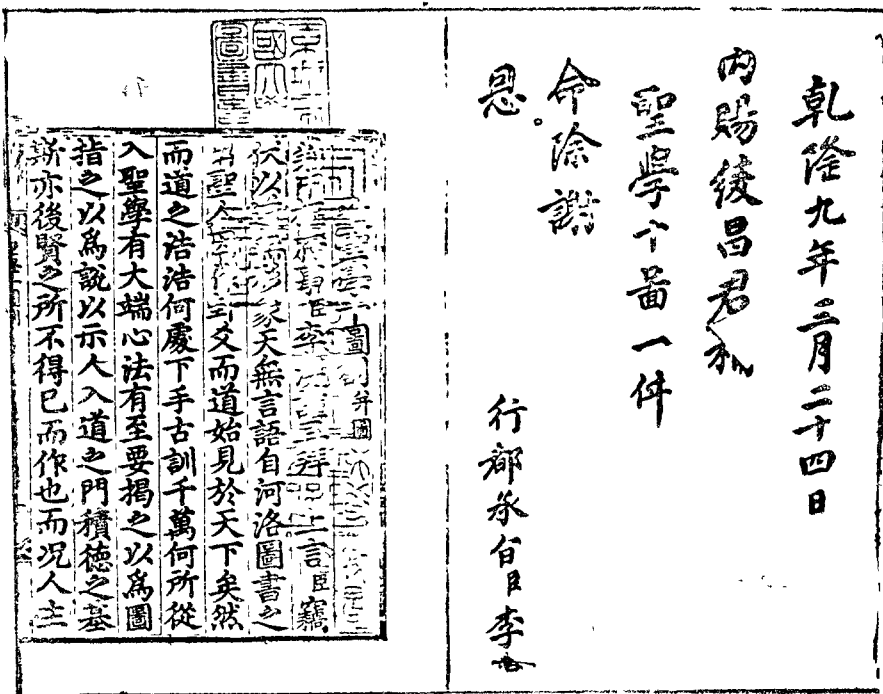 乾隆九年三月二十四日
內賜綾昌君
聖學十圖一件
命除謝
恩
行都承旨臣李
圖劄并圖
李滉謹再拜上言臣竊
伏以道無形象天無言語自河洛圖書之
出聖人因作卦爻而道始見於天下矣然
而道之浩浩何處下手古訓千萬何所從
入聖學有大端心法有至要揭之以爲圖
指之以爲說以示人入道之門積德之基
斯亦後賢之所不得已而作也而况人主